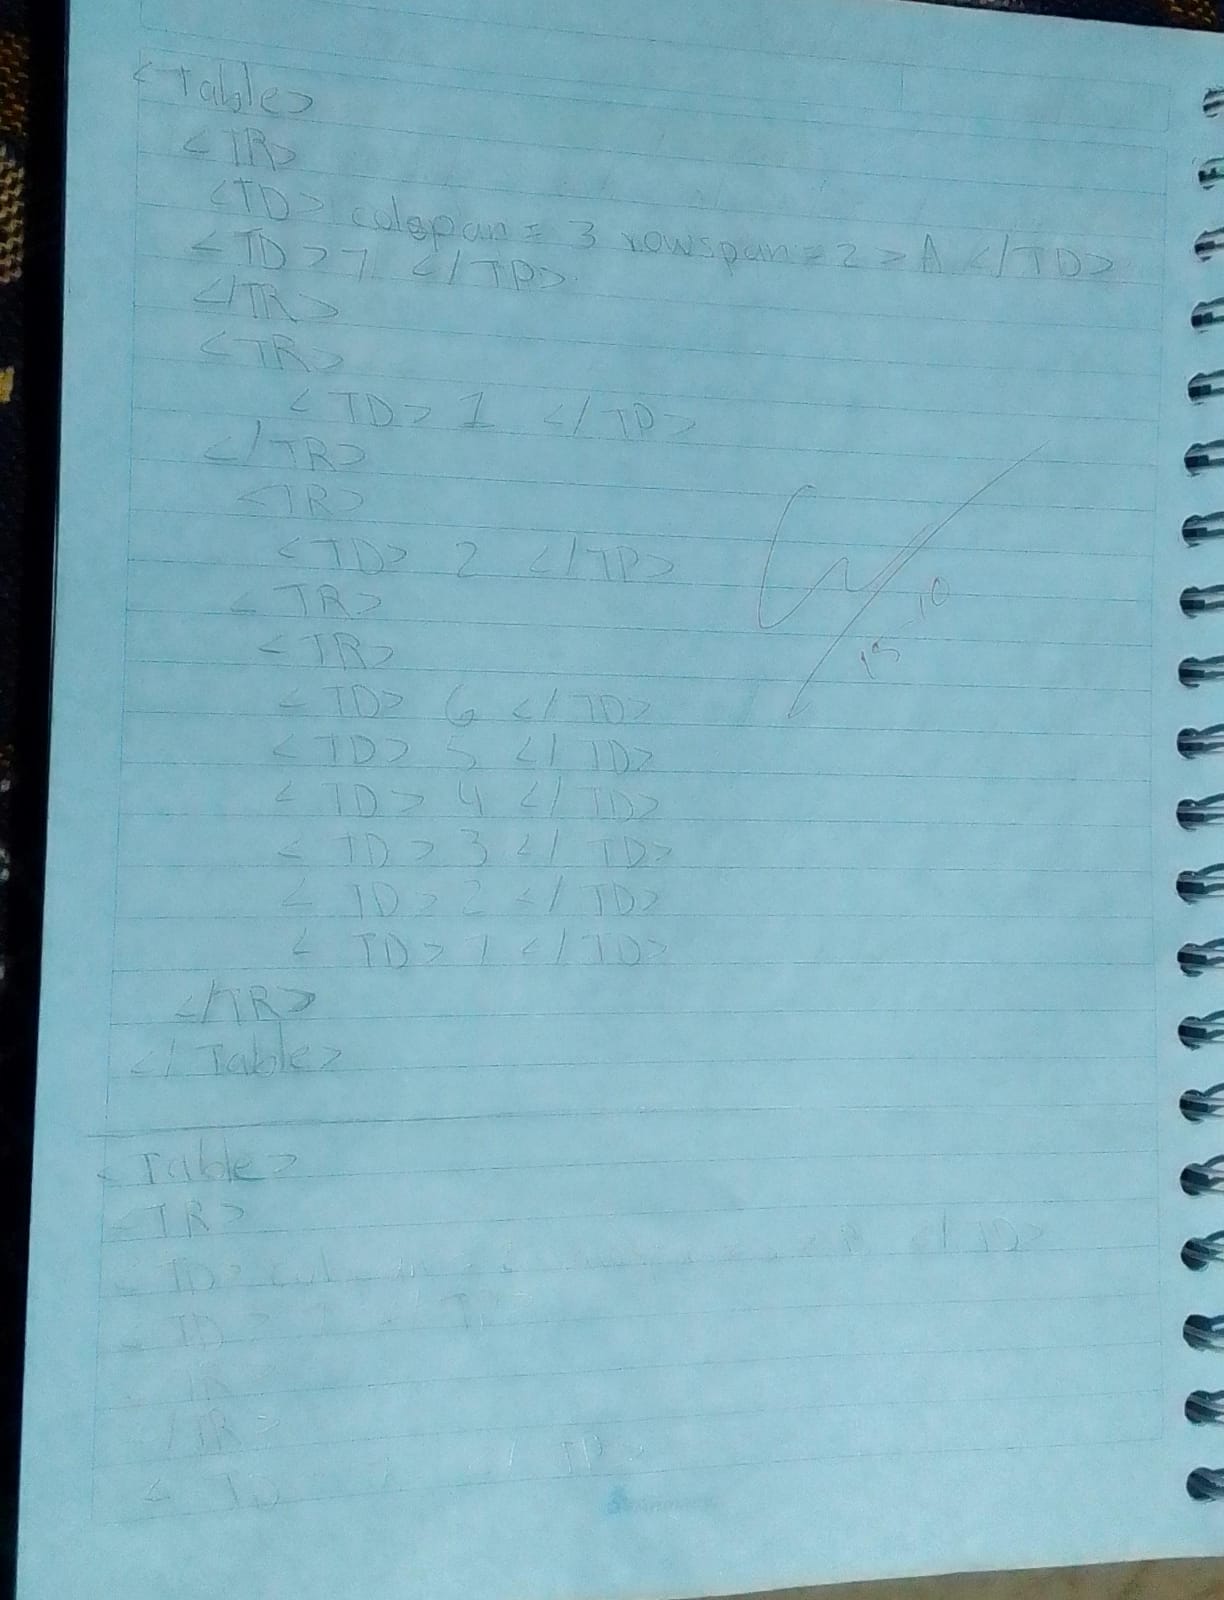 <Table>
<TR>
<TD> colspan = 3 rowspan = 2 > A </TD>
<TD>7 </TD>
</TR>
<TR>
<TD> 1 </TD>
</TR>
<TR>
<TD> 2 </TD>
<TR>
<TR>
<TD> 6 </TD>
<TD> 5 </TD>
<TD> 4 </TD>
<TD> 3 </TD>
<TD> 2 </TD>
<TD> 7 </TD>
</TR>
</Table>
15-10
<Table>
<TR>